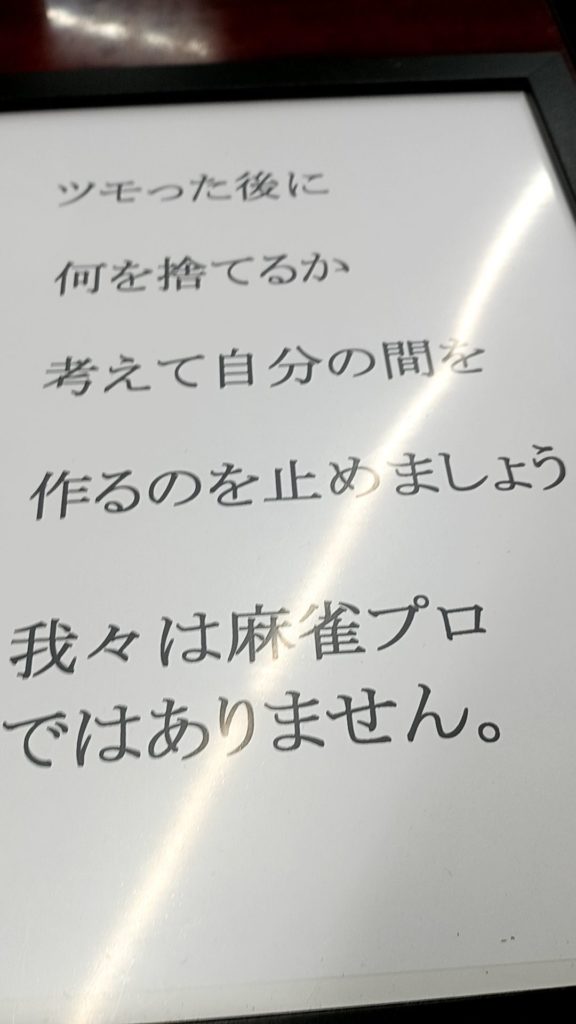 ツモった後に
何を捨てるか
考えて自分の間を
作るのを止めましょう
我々は麻雀プロ
ではありません。